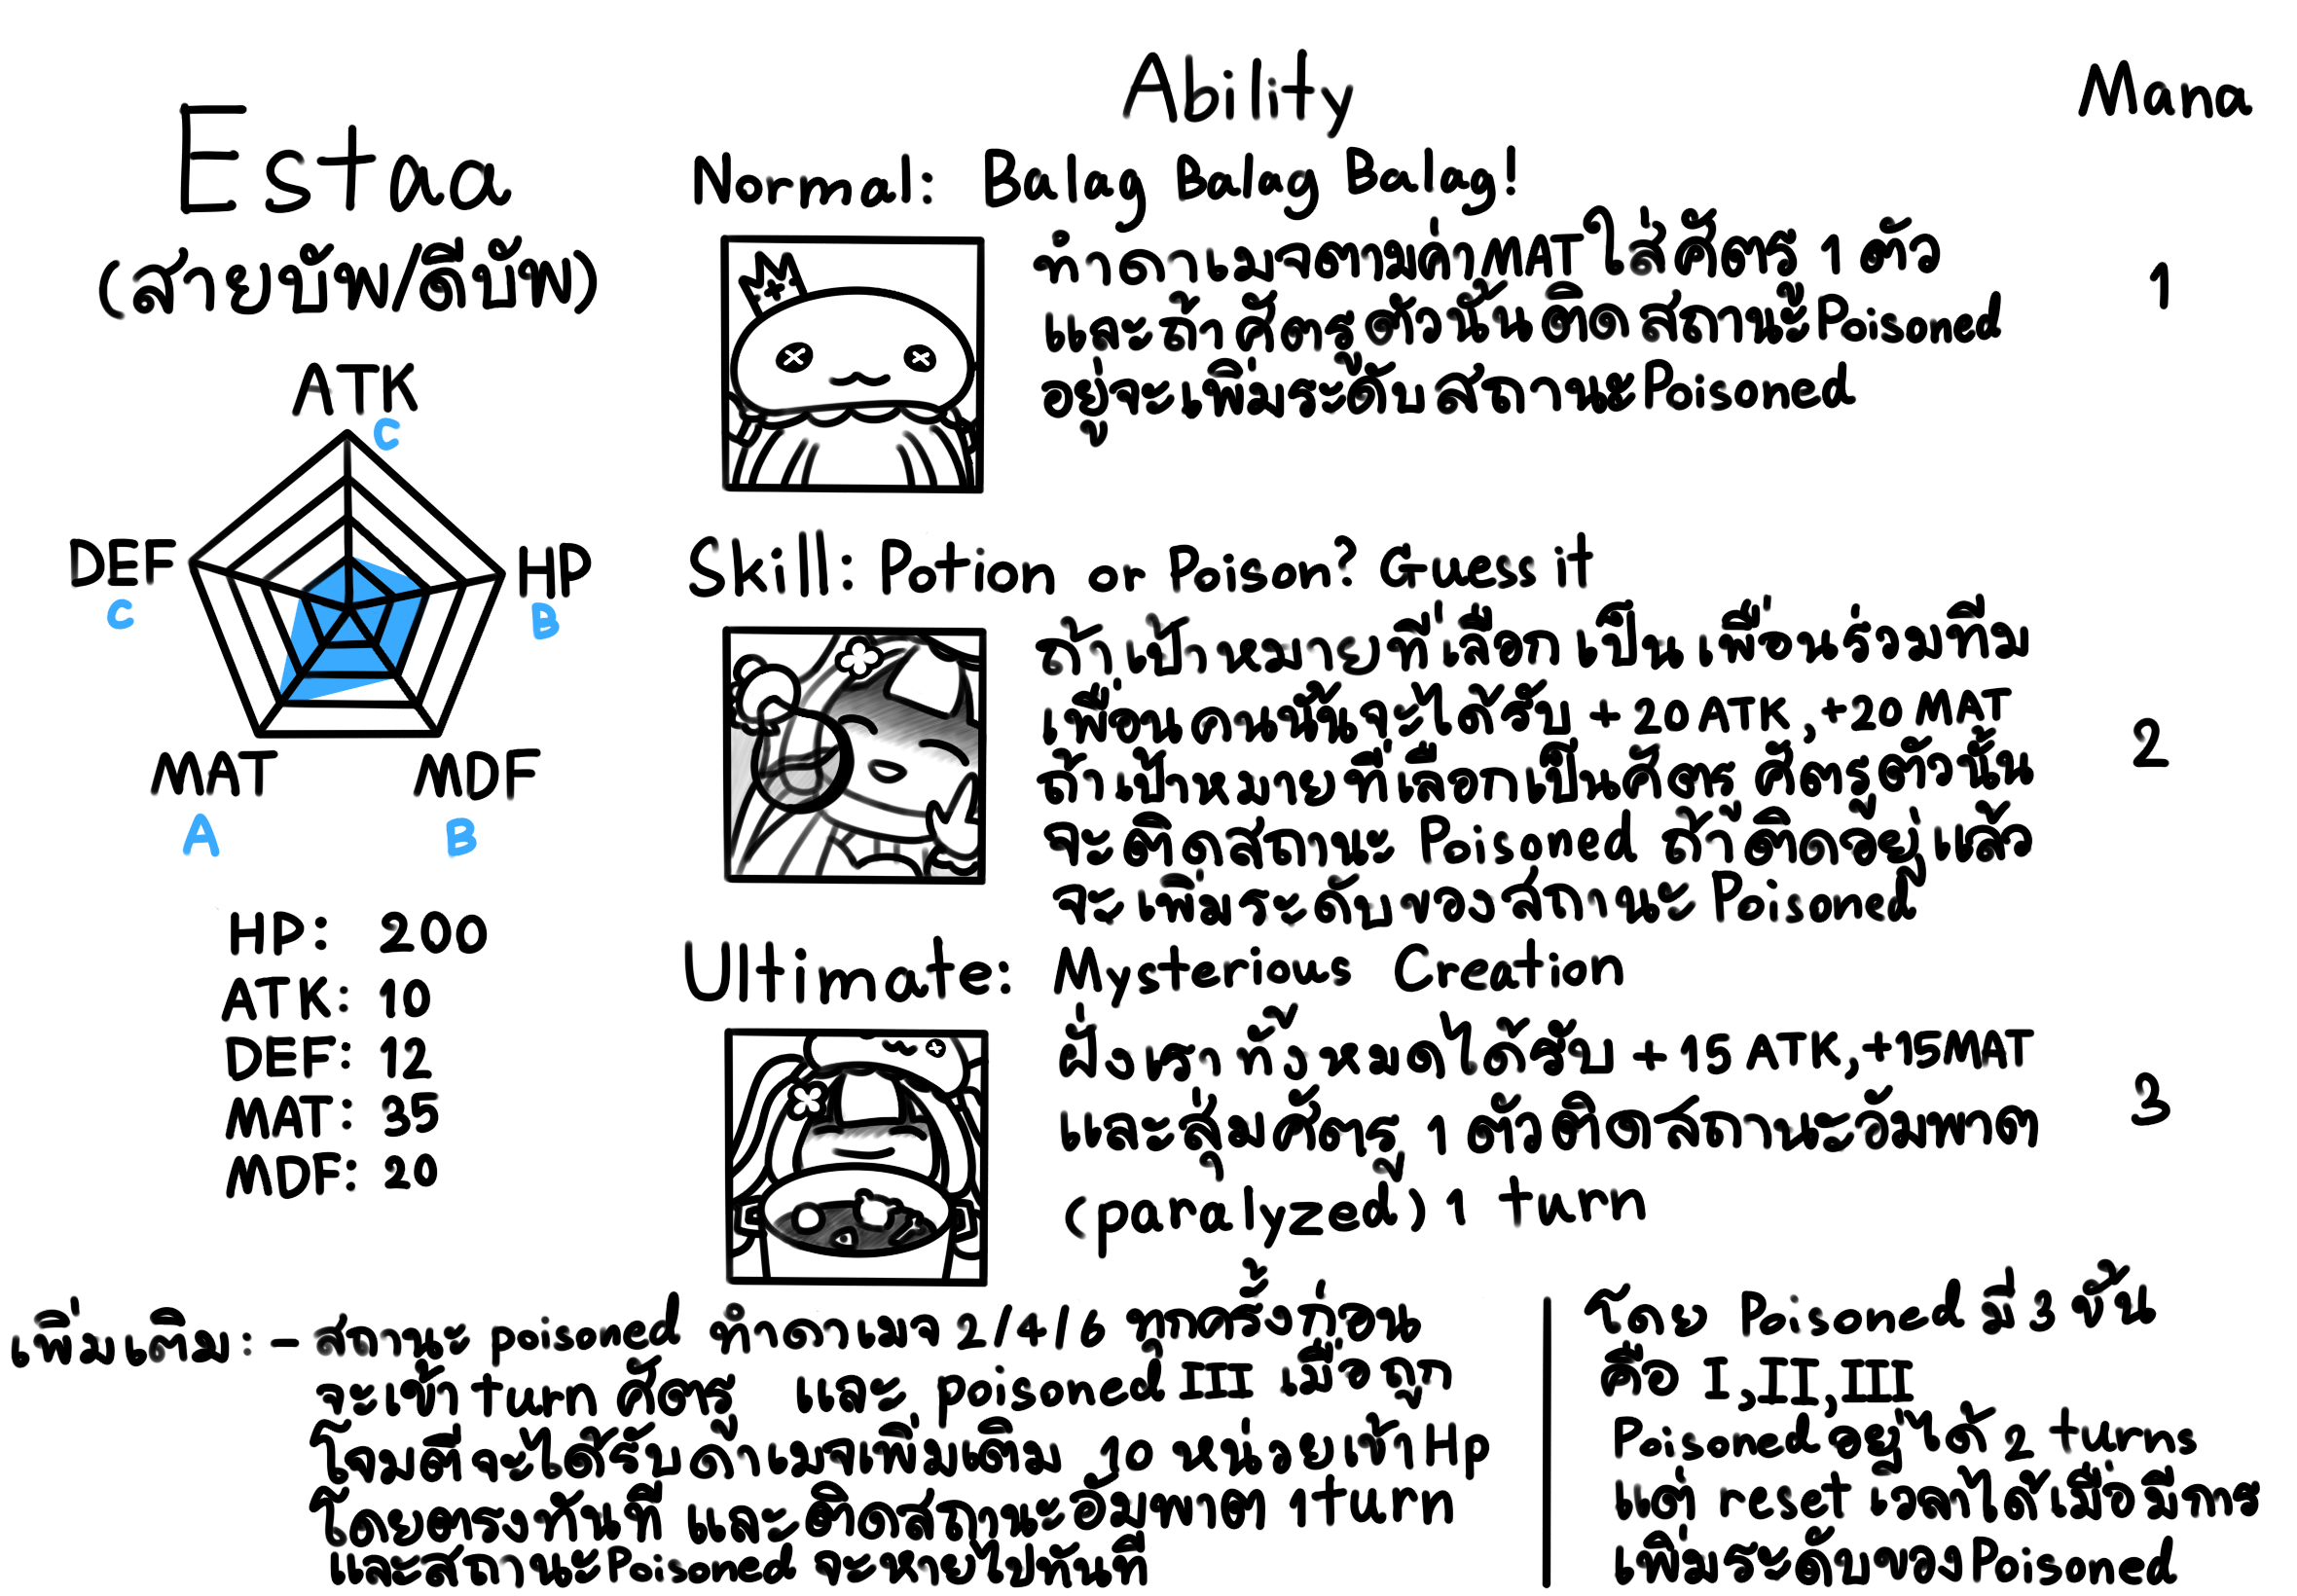 Estaa
(สายบัพ/ดีบัพ)
ATK
C
DEF
C
HP
B
MAT
A
MDF
B
HP: 200
ATK: 10
DEF: 12
MAT: 35
MDF: 20
Ability
Mana
Normal: Balag Balag Balag!
ทำดาเมจตามค่าMATใส่ศัตรู 1 ตัว
และถ้าศัตรูตัวนั้นติดสถานะPoisoned
อยู่จะเพิ่มระดับสถานะPoisoned
1
Skill: Potion or Poison? Guess it
ถ้าเป้าหมายที่เลือกเป็นเพื่อนร่วมทีม
เพื่อนคนนั้นจะได้รับ +20 ATK,+20 MAT
ถ้าเป้าหมายที่เลือกเป็นศัตรู ศัตรูตัวนั้น
จะติดสถานะ Poisoned ถ้าติดอยู่แล้ว
จะเพิ่มระดับของสถานะ Poisoned
2
Ultimate: Mysterious Creation
ฝั่งเราทั้งหมดได้รับ +15 ATK,+15MAT
และสุ่มศัตรู 1 ตัวติดสถานะอัมพาต
(paralyzed) 1 turn
3
เพิ่มเติม: - สถานะ poisoned ทำดาเมจ 2/4/6 ทุกครั้งก่อน
จะเข้า turn ศัตรู และ poisoned III เมื่อถูก
โจมตีจะได้รับดาเมจเพิ่มเติม 10 หน่วยเข้า Hp
โดยตรงทันที และติดสถานะอัมพาต 1turn
และสถานะPoisoned จะหายไปทันที
โดย Poisoned มี 3 ขั้น
คือ I,II,III
Poisoned อยู่ได้ 2 turns
แต่ reset เวลาได้เมื่อมีการ
เพิ่มระดับของPoisoned